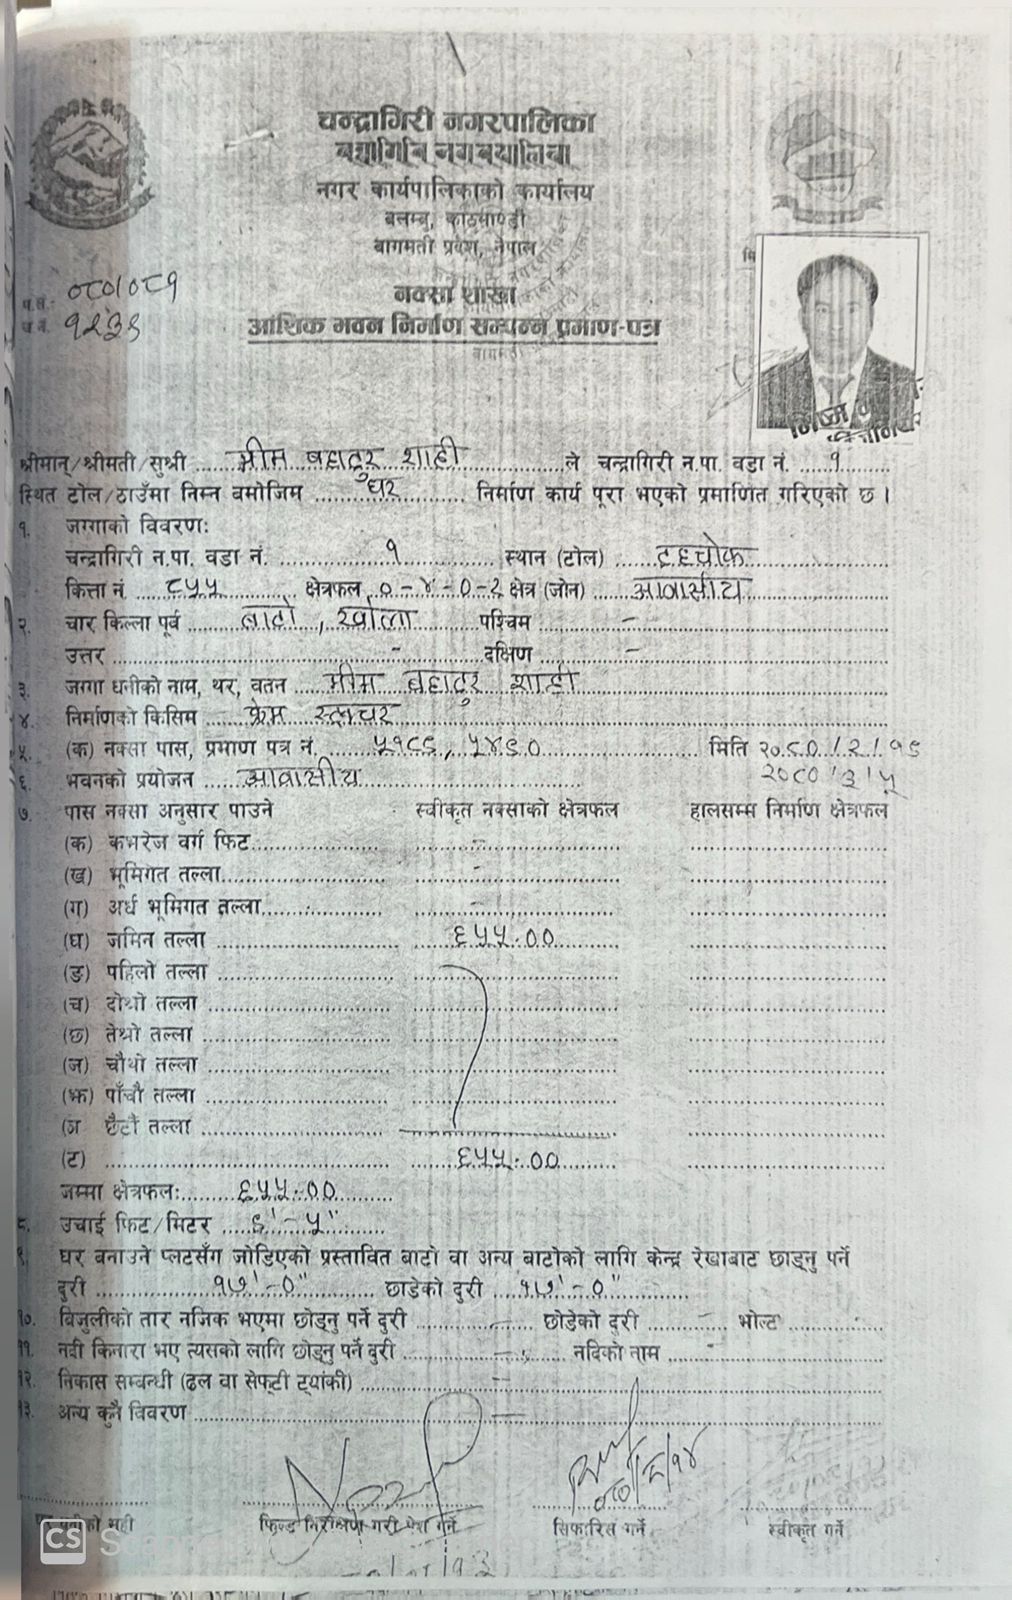 चन्द्रागिरी नगरपालिका
नगर कार्यपालिकाको कार्यालय
बलम्बु, काठमाण्डौ
बागमती प्रदेश, नेपाल
प.सं.: ०८०/०८१
च.नं. १२३९
नक्सा शाखा
आंशिक भवन निर्माण सम्पन्न प्रमाण-पत्र
श्रीमान्/श्रीमती/सुश्री भीम बहादुर शाही ले चन्द्रागिरी न.पा. वडा नं. १
स्थित टोल/ठाउँमा निम्न बमोजिम घर निर्माण कार्य पूरा भएको प्रमाणित गरिएको छ ।
१. जग्गाको विवरण:
चन्द्रागिरी न.पा. वडा नं. १ स्थान (टोल) दहचोक
कित्ता नं ८५५ क्षेत्रफल ०-४-०-२ क्षेत्र (जोन) आवासीय
२. चार किल्ला पूर्व बाटो, खोला पश्चिम -
उत्तर - दक्षिण -
३. जग्गा धनीको नाम, थर, वतन भीम बहादुर शाही
४. निर्माणको किसिम फ्रेम स्ट्रक्चर
५. (क) नक्सा पास, प्रमाण पत्र नं. ५१८६, ५४६० मिति २०८०/२/१६
२०८०/३/५
६. भवनको प्रयोजन आवासीय
७. पास नक्सा अनुसार पाउने स्वीकृत नक्साको क्षेत्रफल हालसम्म निर्माण क्षेत्रफल
(क) कभरेज वर्ग फिट -
(ख) भूमिगत तल्ला -
(ग) अर्ध भूमिगत तल्ला -
(घ) जमिन तल्ला ६५५.००
(ङ) पहिलो तल्ला
(च) दोश्रो तल्ला
(छ) तेश्रो तल्ला
(ज) चौथो तल्ला
(झ) पाँचौ तल्ला
(ञ छैटौं तल्ला
(ट) ६५५.००
जम्मा क्षेत्रफल: ६५५.००
८. उचाई फिट/मिटर ६'-५"
९. घर बनाउने प्लटसँग जोडिएको प्रस्तावित बाटो वा अन्य बाटोको लागि केन्द्र रेखाबाट छाड्नु पर्ने
दुरी १७'-०" छाडेको दुरी १७'-०"
१०. बिजुलीको तार नजिक भएमा छोड्नु पर्ने दुरी - छोडेको दुरी - भोल्ट
११. नदी किनारा भए त्यसको लागि छोड्नु पर्ने दुरी - नदिको नाम -
१२. निकास सम्बन्धी (ढल वा सेफ्टी ट्यांकी) -
१३. अन्य कुनै विवरण -
फिल्ड निरीक्षण गरी पेश गर्ने सिफारिस गर्ने स्वीकृत गर्ने
CS